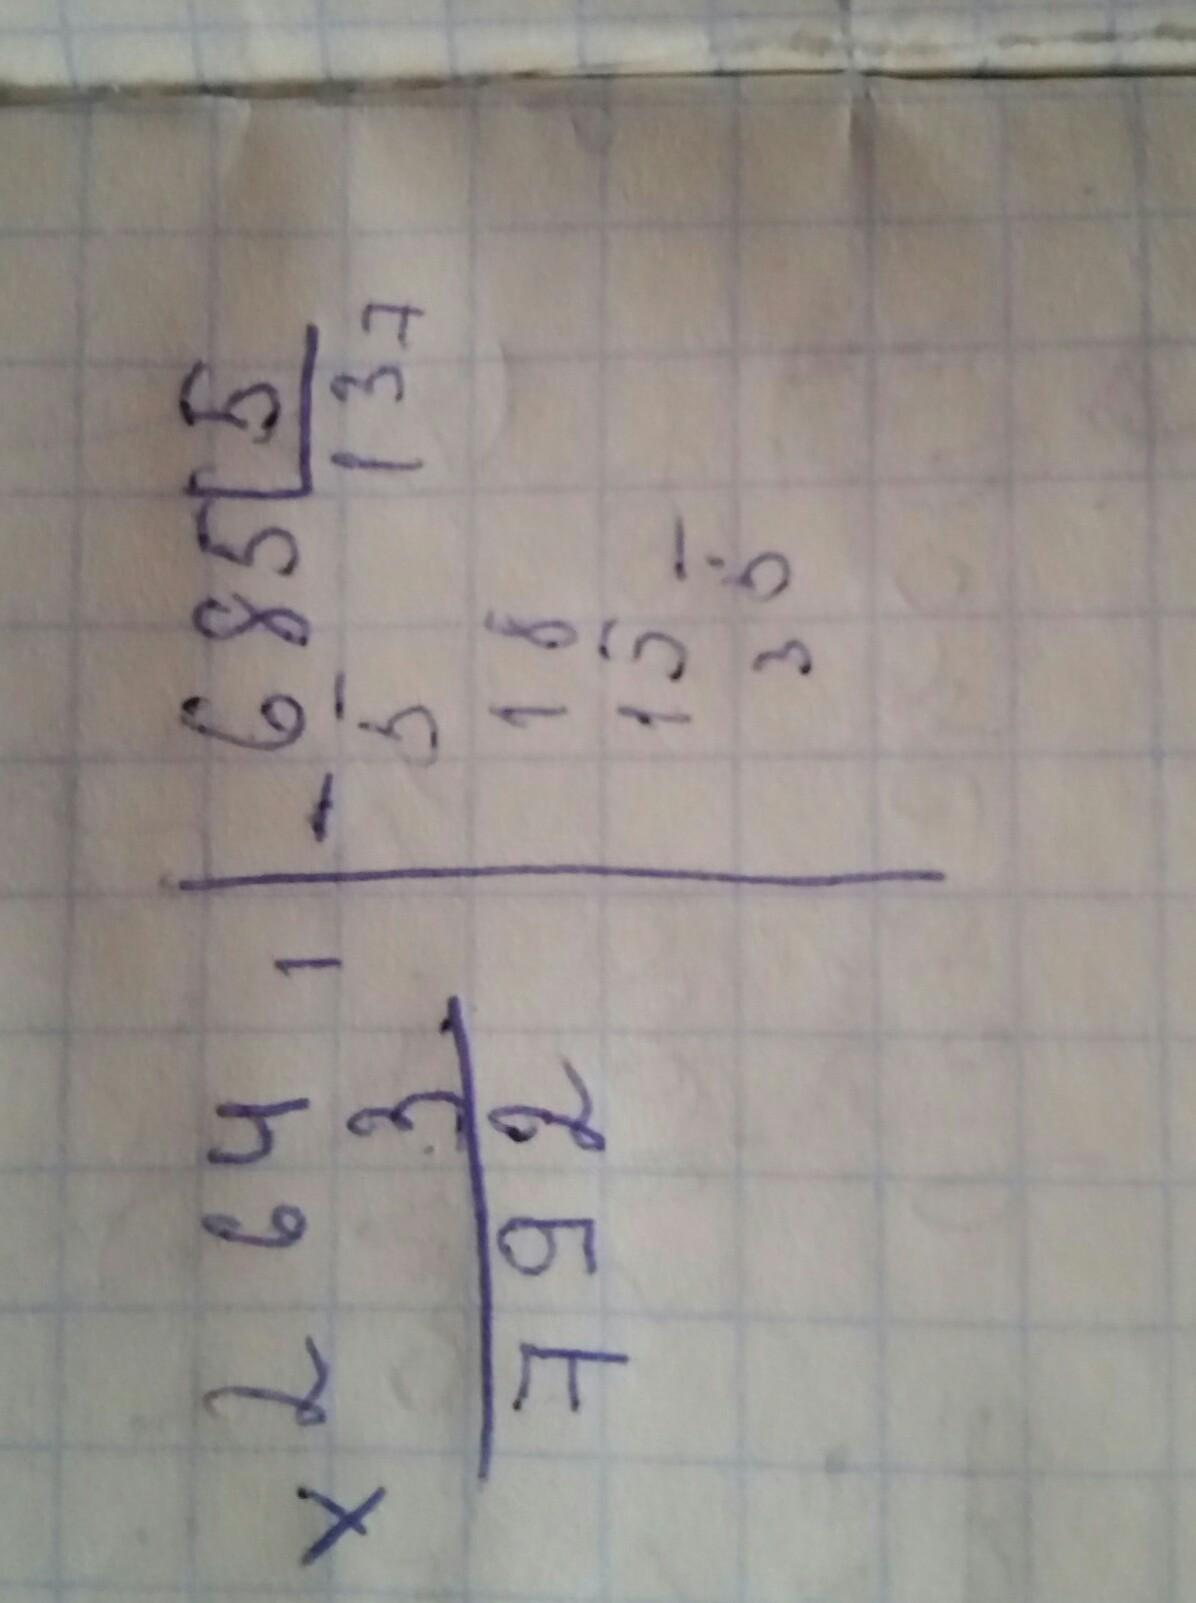 264 1
× 3
792
- 685 5
5 137
18
15
35